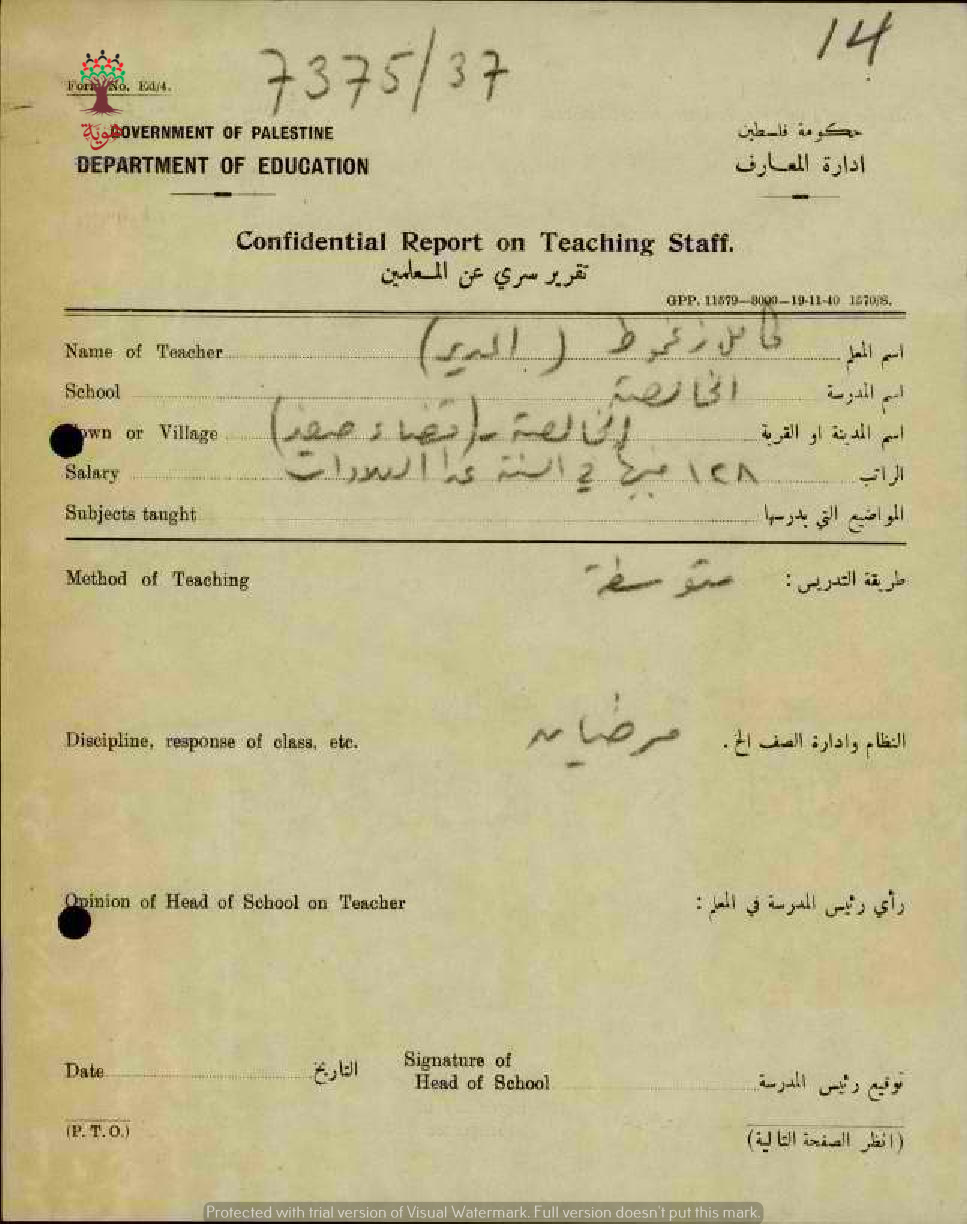 14
7375/37
Form No. Ed/4.
هوية
GOVERNMENT OF PALESTINE
حكومة فلسطين
DEPARTMENT OF EDUCATION
ادارة المعارف
Confidential Report on Teaching Staff.
تقرير سري عن المعلمين
GPP. 11579—8000—19-11-40 1570/S.
Name of Teacher كامل زغموط (المدير) اسم المعلم
School الخالصة اسم المدرسة
Town or Village الخالصة - (قضاء صفد) اسم المدينة او القرية
Salary ١٢٨ جنيها في السنة عدا العلاوات الراتب
Subjects taught المواضيع التي يدرسها
Method of Teaching متوسطة طريقة التدريس :
Discipline, response of class, etc. مرضيان النظام وادارة الصف الخ .
Opinion of Head of School on Teacher رأي رئيس المدرسة في المعلم :
Date التاريخ Signature of
Head of School توقيع رئيس المدرسة
(P. T. O.) (انظر الصفحة التالية)
Protected with trial version of Visual Watermark. Full version doesn't put this mark.